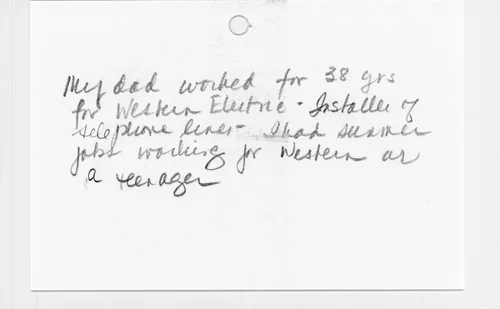 My dad worked for 38 yrs
for Western Electric - Installer of
telephone lines - I had summer
jobs working for Western as
a teenager